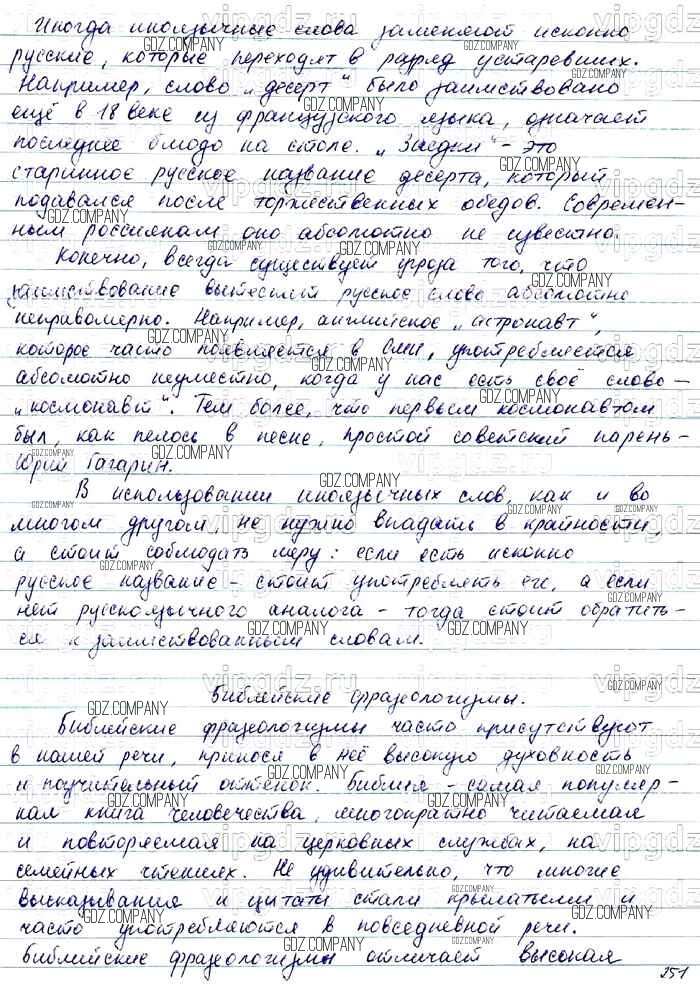 Иногда иноязычные слова заменяют исконно
русские, которые переходят в разряд устаревших.
Например, слово „десерт" было заимствовано
ещё в 18 веке из французского языка, означает
последнее блюдо на столе. „Заедки" - это
старинное русское название десерта, который
подавался после торжественных обедов. Современ-
ным россиянам оно абсолютно не известно.
Конечно, всегда существует угроза того, что
заимствование вытеснит русское слово абсолютно
неправомерно. Например, английское „астронавт",
которое часто появляется в СМИ, употребляется
абсолютно неуместно, когда у нас есть своё слово -
„космонавт". Тем более, что первым космонавтом
был, как пелось в песне, простой советский парень -
Юрий Гагарин.
В использовании иноязычных слов, как и во
многом другом, не нужно впадать в крайности,
а стоит соблюдать меру: если есть исконно
русское название - стоит употреблять его, а если
нет русскоязычного аналога - тогда стоит обратить-
ся к заимствованным словам.
Библейские фразеологизмы.
Библейские фразеологизмы часто присутствуют
в нашей речи, принося в неё высокую духовность
и поучительный оттенок. Библия - самая популяр-
ная книга человечества, многократно читаемая
и повторяемая на церковных службах, на
семейных чтениях. Не удивительно, что многие
высказывания и цитаты стали крылатыми и
часто употребляются в повседневной речи.
Библейские фразеологизмы отличает высокая
251